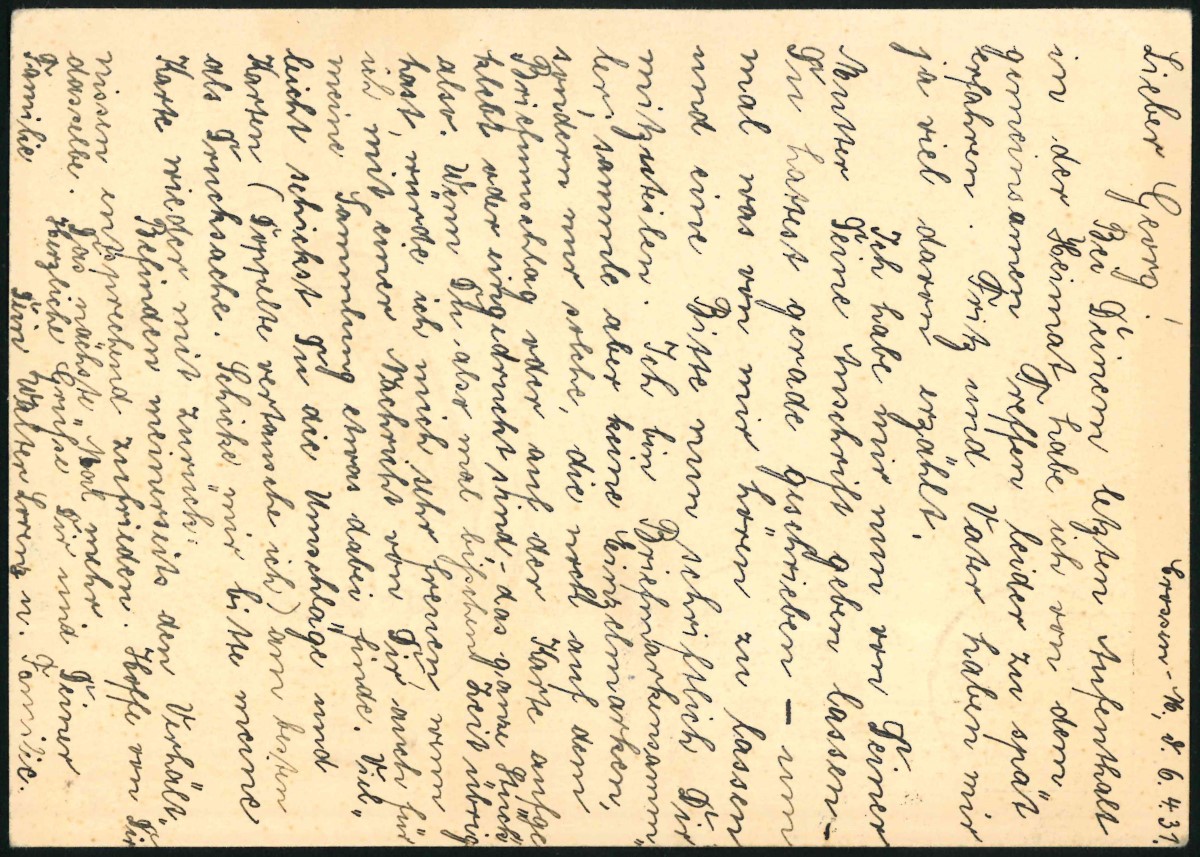 Crossen-M, d. 6.4.31.
Lieber Georg!
Bei Deinem letzten Aufenthalt
in der Heimat habe ich von dem
gemeinsamen Treffen leider zu spät
erfahren. Fritz und Vater haben mir
ja viel davon erzählt.
Ich habe mir nun von Deiner
Mutter Deine Anschrift geben lassen-
Du hattest gerade geschrieben - um
mal was von mir hören zu lassen
und eine Bitte nun schriftlich Dir
mitzuteilen. Ich bin Briefmarkensamm"
ler, sammle aber keine Einzelmarken,
sondern nur solche, die noch auf dem
Briefumschlag oder auf der Karte aufge
klebt oder eingedruckt sind - das ganze Stück
also. Wenn Du also mal bißchen Zeit übrig
hast, würde ich mich sehr freuen, wenn
ich mit einer Nachricht von Dir, auch für
meine Sammlung etwas dabei finde. Viel"
leicht schickst Du die Umschläge und
Karten (Doppelte vertausche ich) am besten
als Drucksache. Schicke mir bitte meine
Karte wieder mit zurück.
Befinden meinerseits den Verhält"
nissen entsprechend zufrieden. Hoffe von Dir
dasselbe. Das nächste Mal mehr.
Herzliche Grüße Dir und Deiner
Familie Dein Walter Lorenz n. Familie.